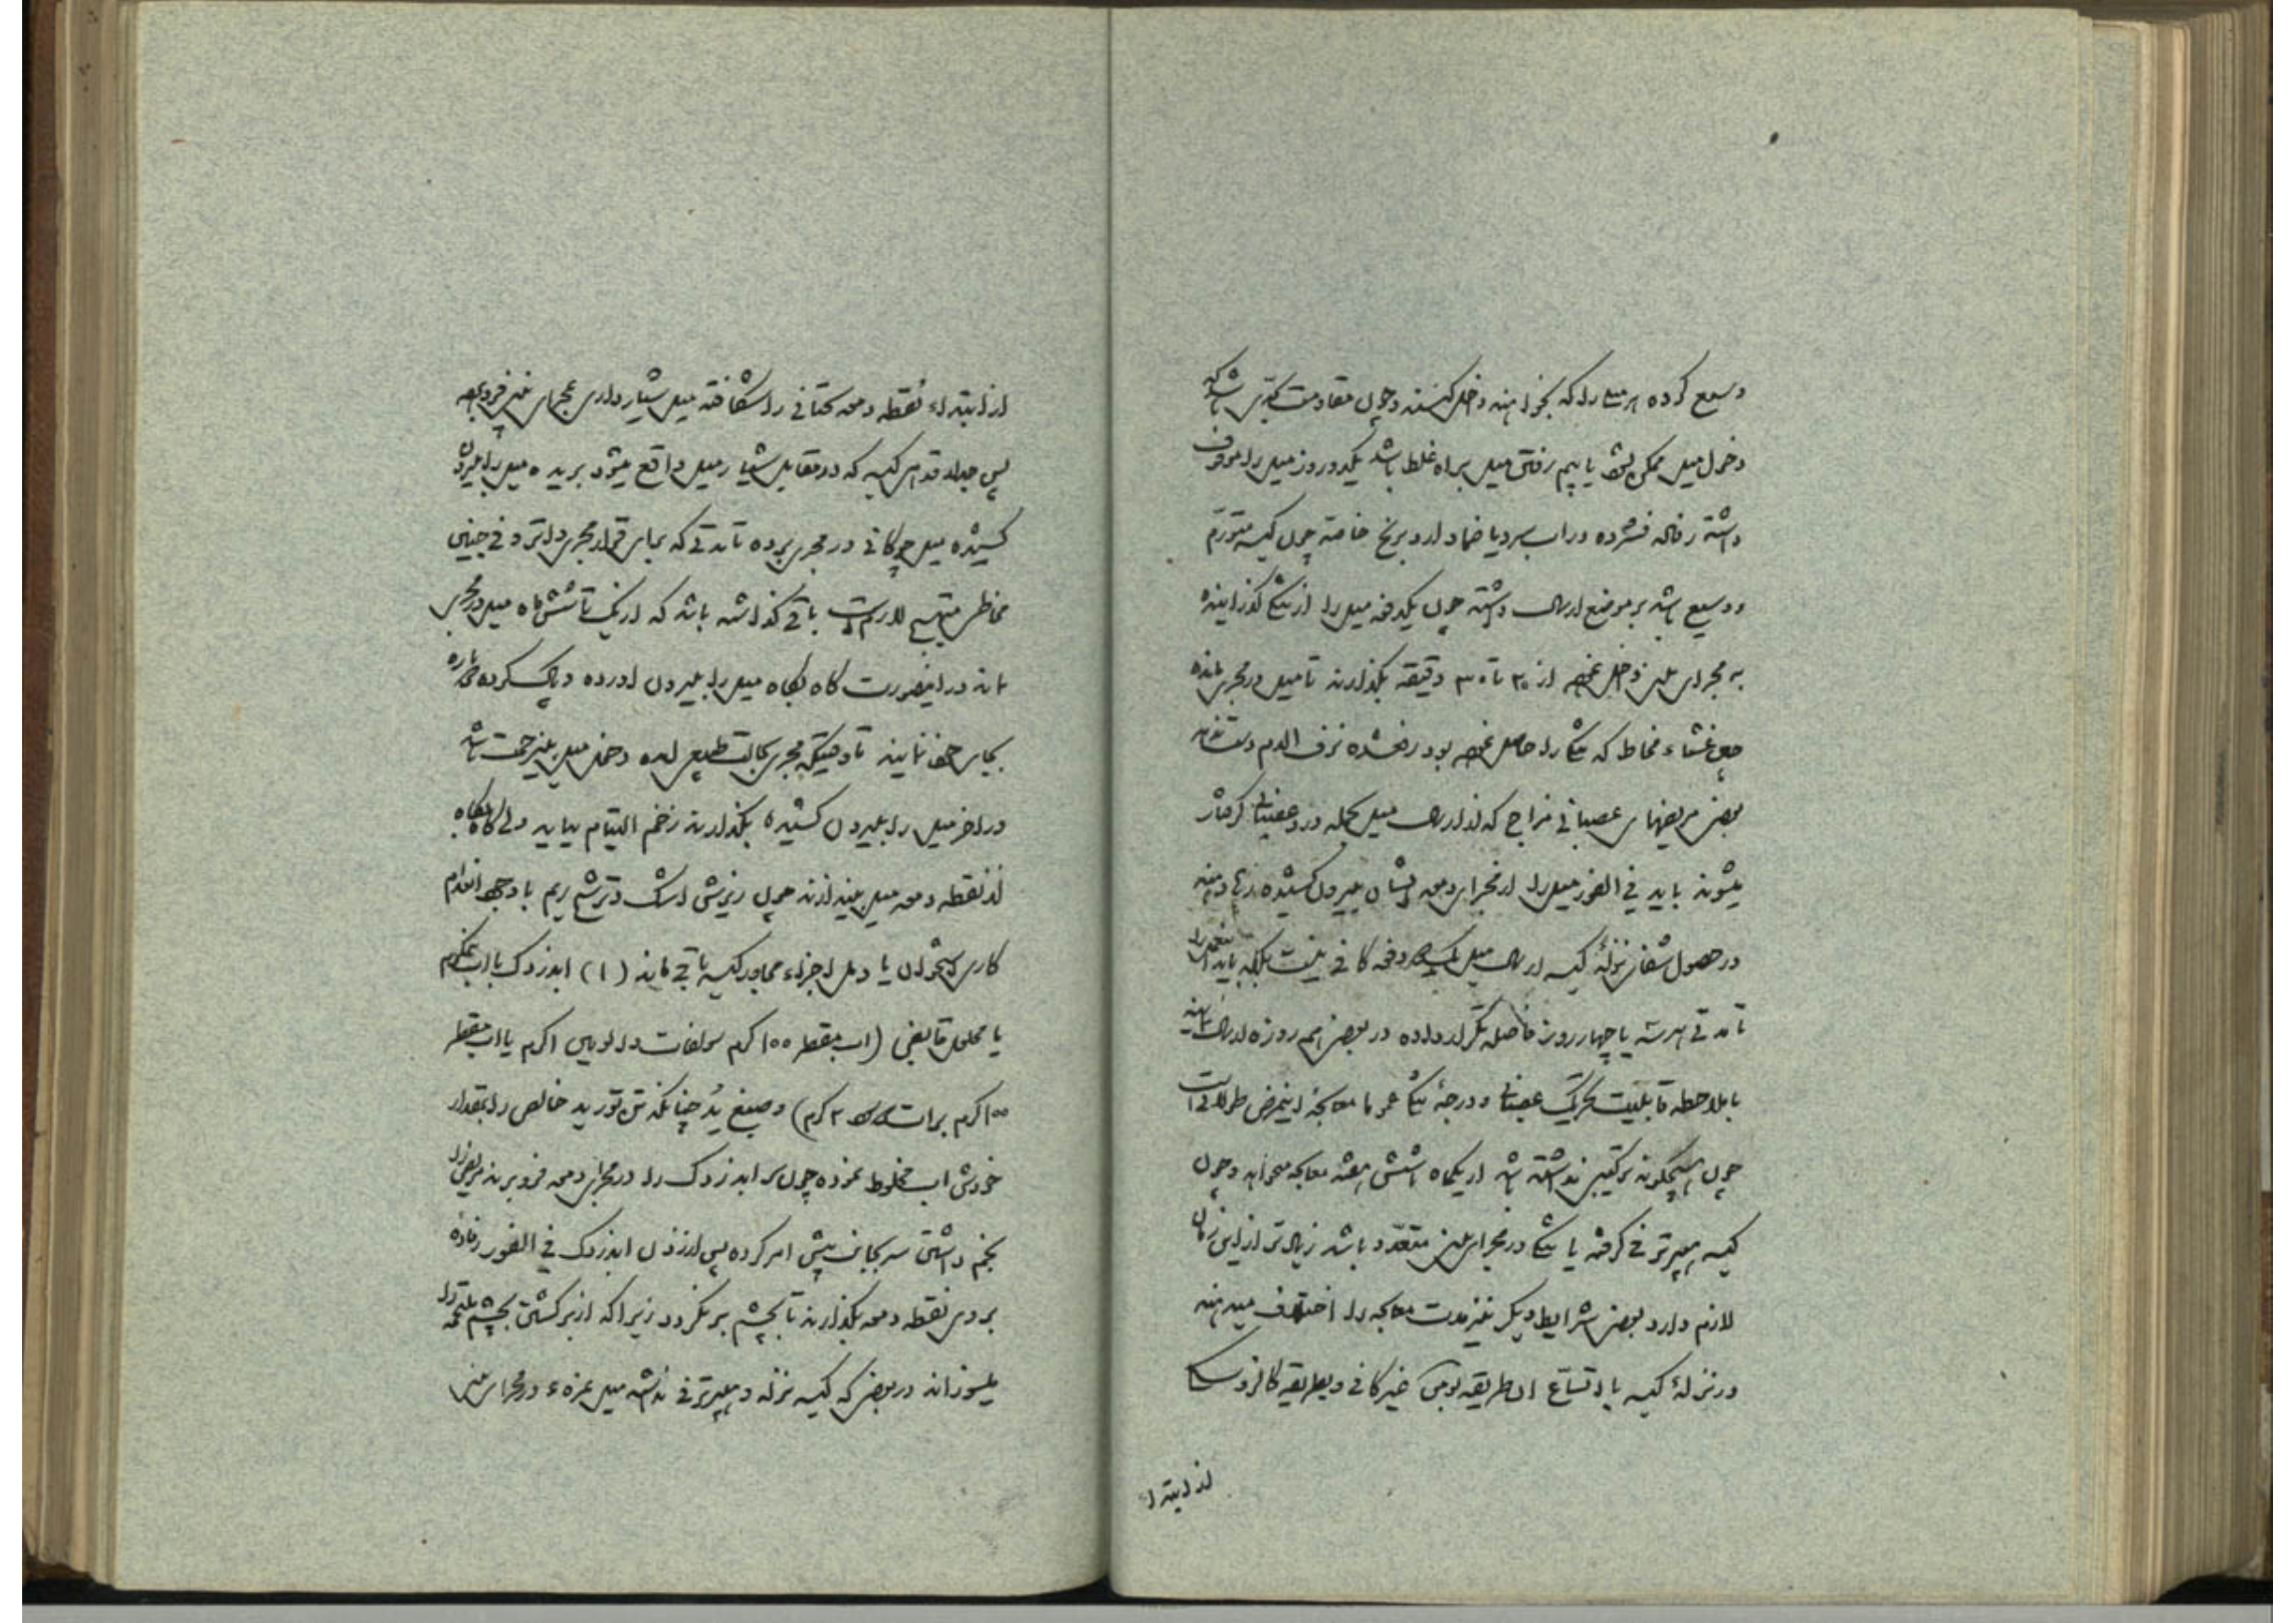 وسیع کرده هر میل را که بخواهند داخل کنند و چون مقاومت کثیری باشد که
دخول میل ممکن نشود یا بیم رفتن میل براه غلط باشد یکدو روز میل را موقوف
داشته رفاده فشرده در اب سرد یا ضماد ارد برنج خاصه چون کیسه متورم
و وسیع باشد بر موضع ارسال داشته چون یکدفعه میل را از تنگی گذرانیده
به مجرای بینی داخل نمودند از ۲۰ تا ۳۰ دقیقه بگذارند تا میل در مجری بماند
چون غشاء مخاط که تنگی را حاصل نموده بود زخم شده نزف الدم دست ندهد
بعضی مریضهای عصبانی مزاج که از ارسال میل بحمله درد عصبانی گرفتار
میشوند باید فی الفور میل را از مجرای دمعه ایشان بیرون کشیده
در حصول شفای نزلهٔ کیسه ارسال میل یک دو دفعه کافی نیست بلکه باید
تا مدتی هر سه یا چهار روز فاصله تکرار داده در بعضی هم روزه ارسال نمایند
بملاحظه قابلیت تحریک عصبانی و درجهٔ تنگی عموما معالجه اینمرض طولانی است
چون هیچگونه ترکیبی نداشته باشد از یکماه تا شش هفته معالجه میخواهد و چون
کیسه هیپرترفی گرفته یا تنگی در مجرای بینی متعدد باشد زیادتر از این زمان
لازم دارد بعضی شرایط دیگر نیز مدت معالجه را اختلاف میدهند
در نزلهٔ کیسه با اتساع ان طریقه بومن غیر کافی و بطریقه
از ابتداء
از ابتداء نقطه دمعه تحتانی را شکافته میل شیاردار بمجرای بینی فرو نموده
پس جدار قدامی کیسه که در مقابل شیار میل واقع میشود بریده میل را بیرون
کشیده میل در مجری برده تا مدتی که برای قرار مجری دارد فی جنبین
مخاطی متهیج لازم است باقی گذاشته باشد که از یک تا شش ماه میل در مجری
ماند در اینصورت گاه بگاه میل را بیرون اورده و پاک کرده دوباره
بجای خود نمایند تا وقتیکه مجری بحالت طبیعی امده دخول میل بیزحمت باشد
در اخر میل را بیرون کشیده بگذارند زخم التیام بیابد ولی گاه بگاه
از نقطه دمعه میل بیندازند چون ریزش اشک و ترشح ریم با وجود انعدام
کاری استخوان یا دمل اجزاء مجاور کیسه باقی ماند (۱) ابدزدک با اب نیمگرم
یا محلول قابضی (اب مقطر ۱۰۰ گرم سولفات دالومین ۱ گرم یا اب مقطر
۱۰۰ گرم برات ۲ گرم) و صبغ ید چنانکه تن تورید خالص را بمقدار
خودش اب مخلوط نموده چون سر ابدزدک را در مجرای دمعه فرو برند مریض را
بخم داشتن سر بجانب پیش امر کرده پس از زدن ابدزدک فی الفور رفاده
بروی نقطه دمعه بگذارند تا بچشم برنگردد زیرا که از برگشتن بچشم ملتحمه را
میسوزاند در بعضی که کیسه نزله و هیپرترفی نداشته میل نمره ۶ در مجرای بینی